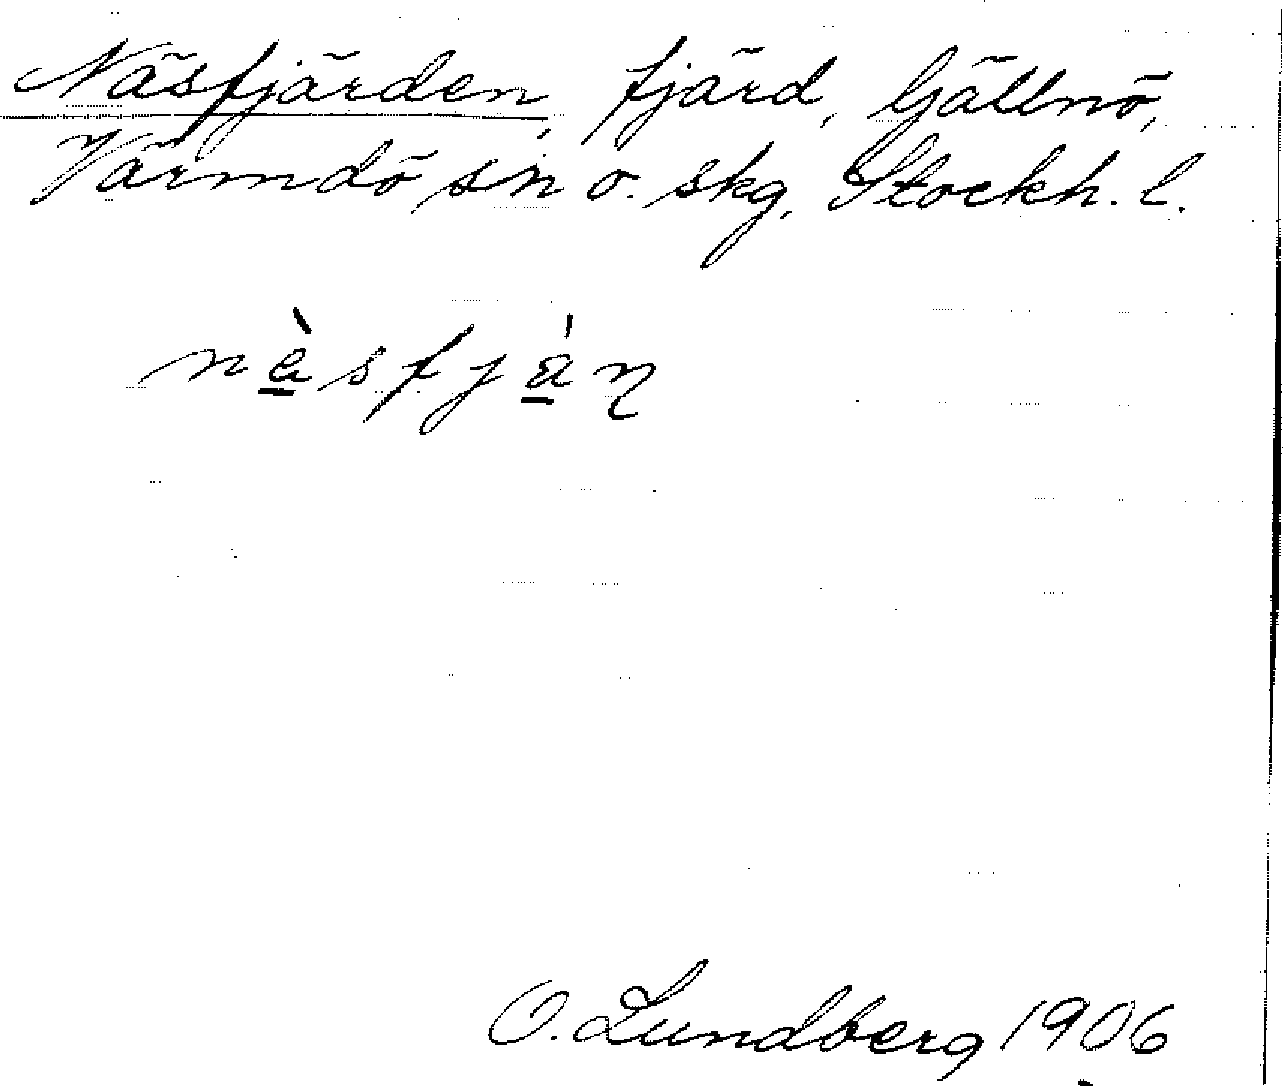 Näsfjärden, fjärd, Gällnö,
Värmdö sn o. skg, Stockh. l.
nä̀sfjä́ɳ
O. Lundberg 1906